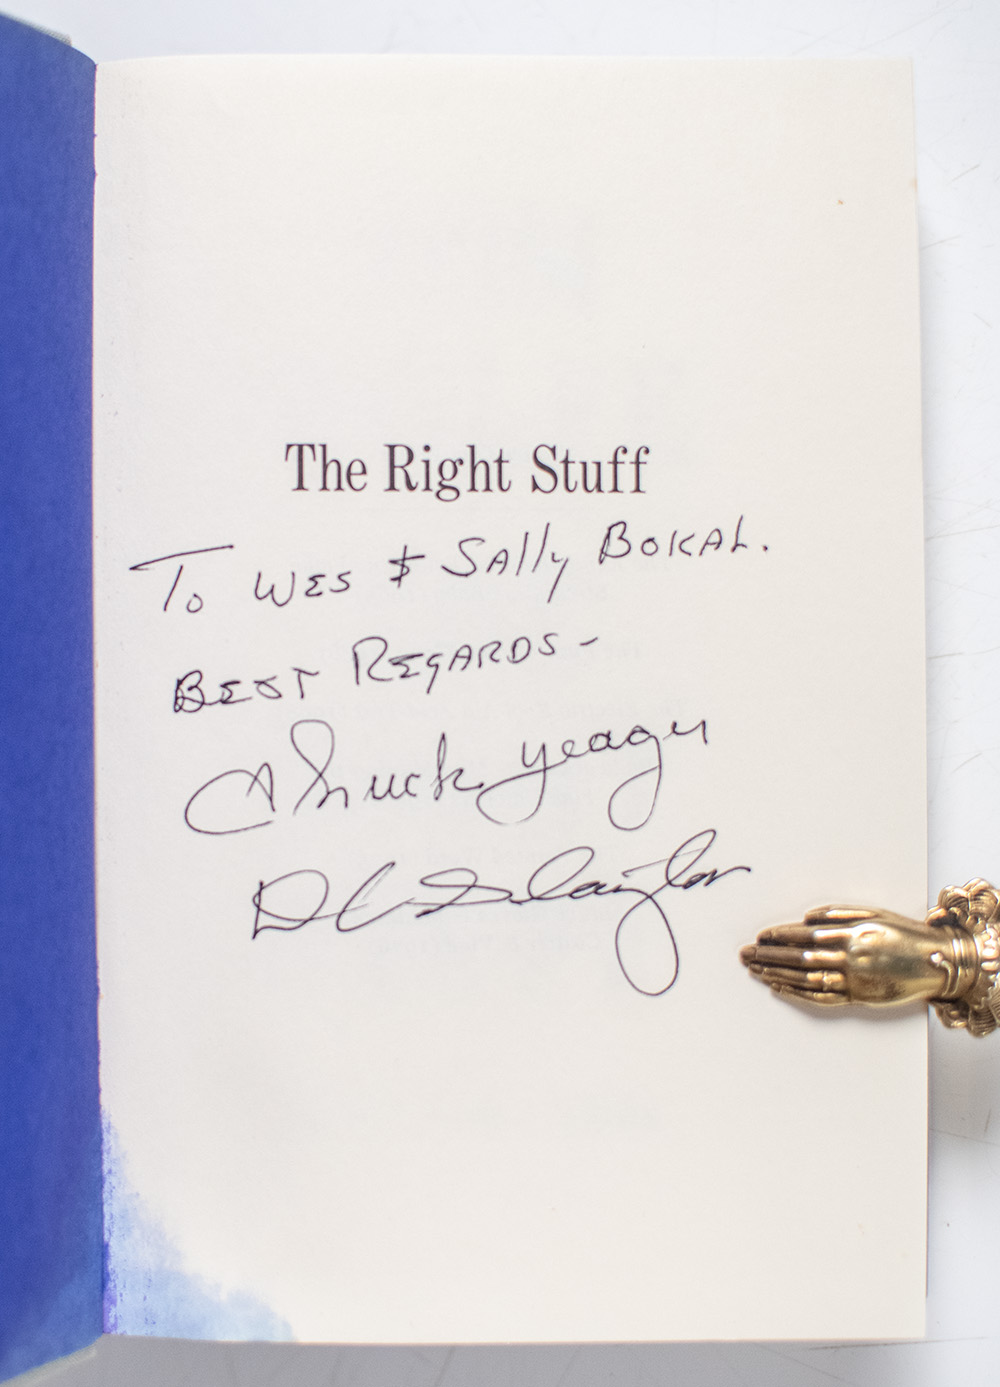 The Right Stuff
To WES & SAlly BOKAL.
BEST REGARDS-
Chuck Yeager
DK Slayton